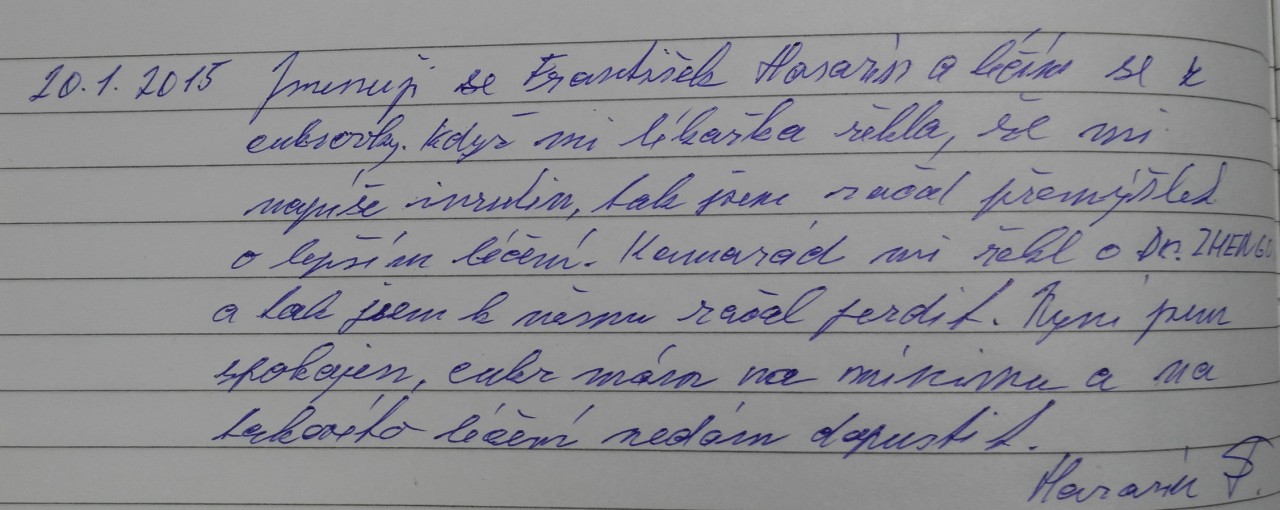 20.1.2015 Jmenuji se František a léčím se z
cukrovky. Když mi lékařka řekla, že mi
napíše inzulin, tak jsem začal přemýšlet
o lepším léčení. Kamarád mi řekl o DR. ZHENGO
a tak jsem k němu začal jezdit. Nyní jsem
spokojen, cukr mám na minimu a na
takovéto léčení nedám dopustit.